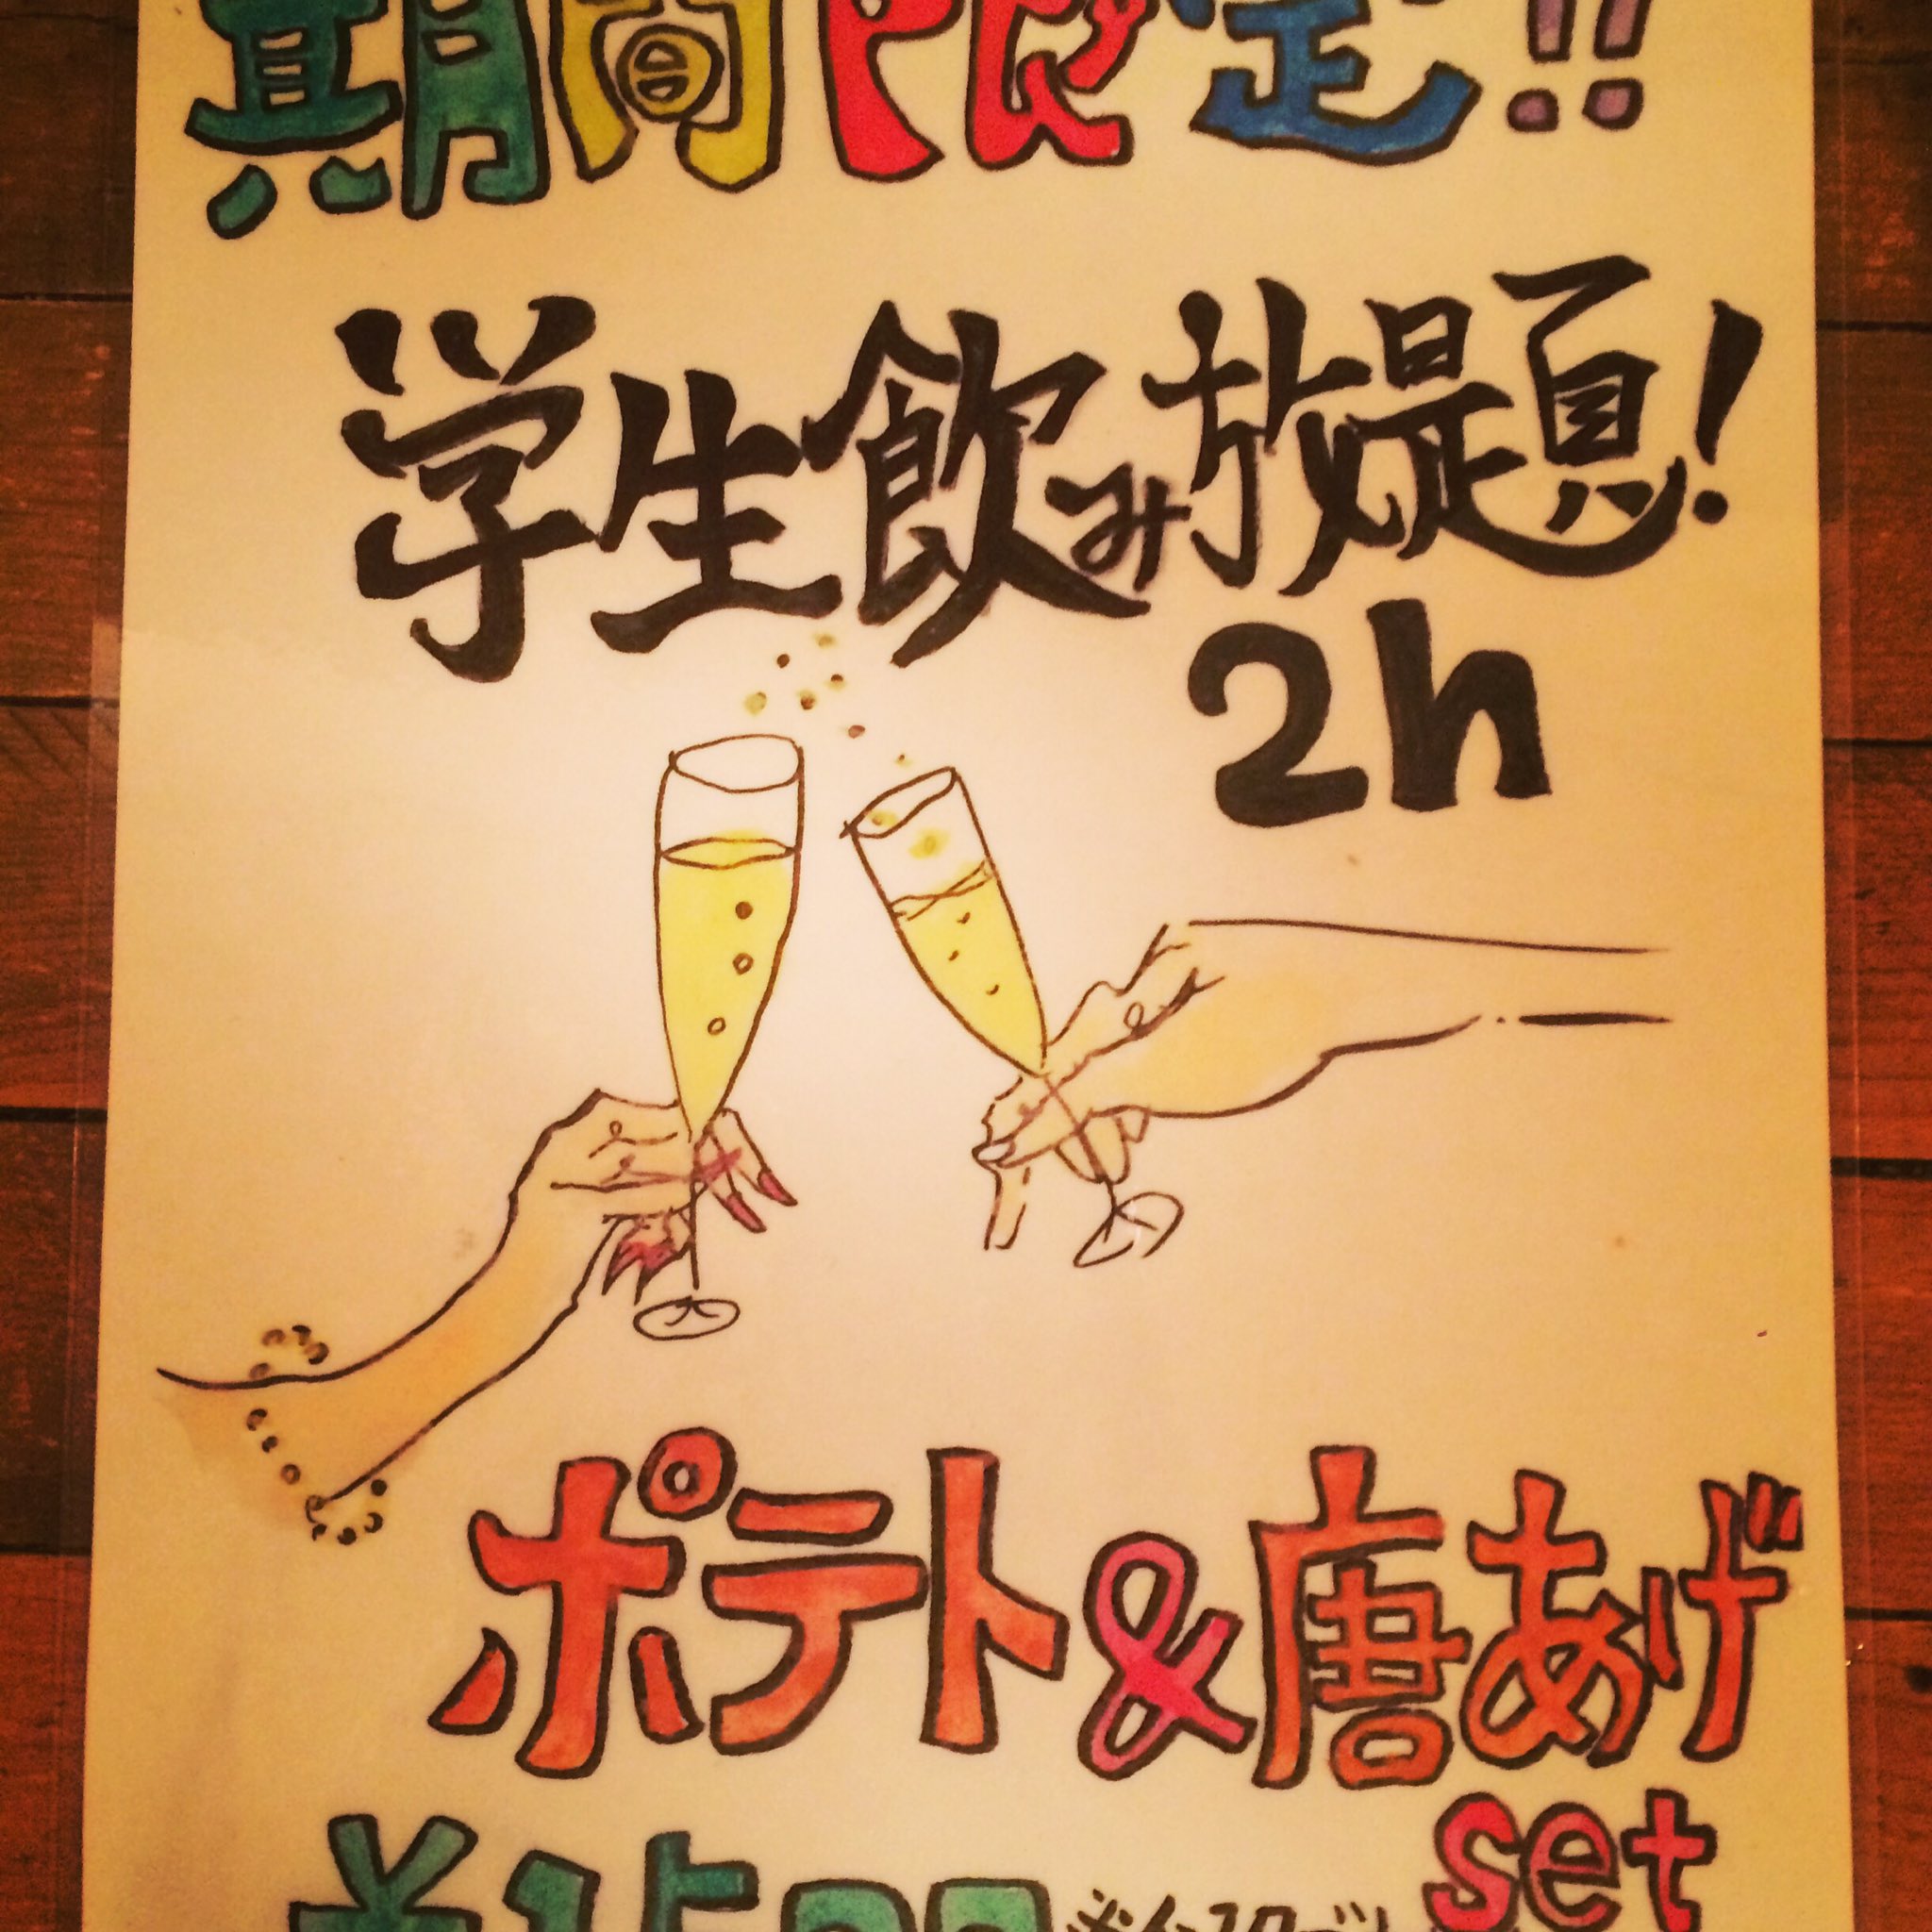 期間限定!!
学生飲み放題!
2h
ポテト&唐あげ
set
¥1500